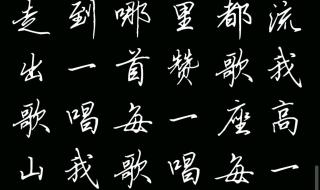 走到哪里都流
出一首赞歌我
歌唱每一座高
山我歌唱每一